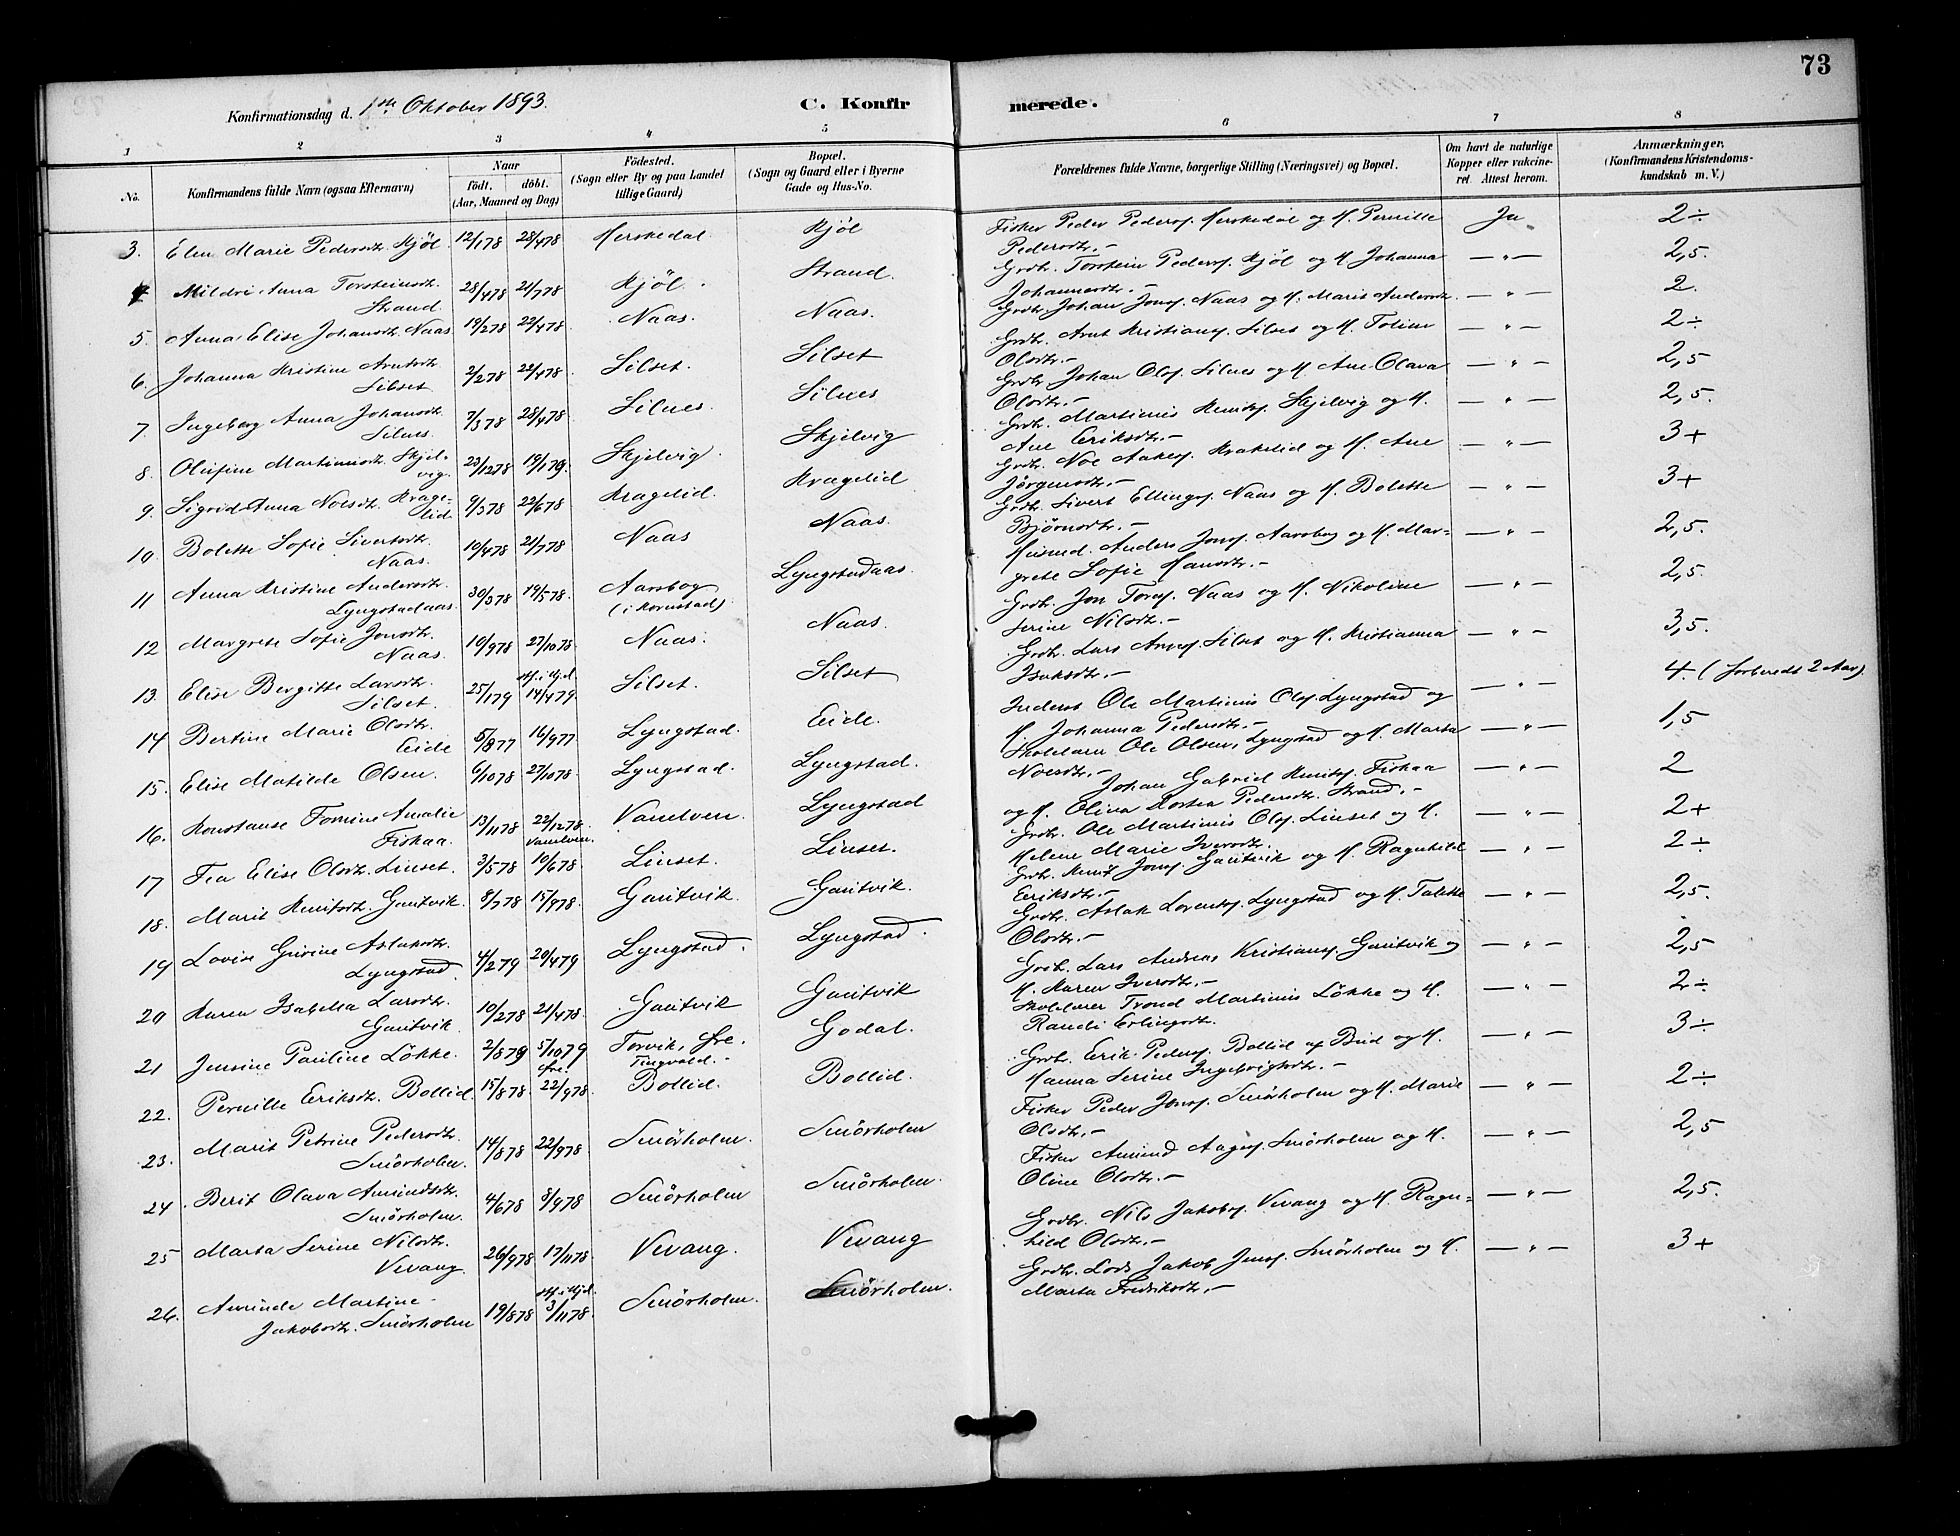 73
Konfirmationsdag d. 1ste Oktober 1893.
C. Konfirmerede.
1 2 3 4 5 6 7 8
No. Konfirmandens fulde Navn (ogsaa Efternavn) Naar født, døbt. (Aar, Maaned og Dag) Fødested. (Sogn eller By og paa Landet tillige Gaard) Bopæl. (Sogn og Gaard eller i Byerne Gade og Hus-No. Forældrenes fulde Navne, borgerlige Stilling (Næringsvei) og Bopæl. Om havt de naturlige Kopper eller vakcineret. Attest herom. Anmærkninger, (Konfirmandens Kristendomskundskab m. V.)
3. Elen Marie Pedersdtr. Kjöl 12/1 78 28/4 78 Herskedal Kjöl Fisker Peder Peders. Herskedal og H. Pernille Pedersdtr. – Ja 2÷
4. Mildri Anna Torsteinsdtr. Strand 28/4 78 21/7 78 Kjöl. Strand. Grdbr. Torstein Peders. Kjöl og H. Johanna Johannesdtr. – — " — 2,5.
5. Anna Elise Johansdtr. Naas 19/2 78 22/4 78 Naas. Naas. Grdbr. Johan Jons. Naas og H. Marit Andersdtr. — " — 2.
6. Johanna Kristine Arntsdtr. Silset 2/2 78 22/4 78. Silset. Silset Grdbr. Arnt Kristians. Silset og H. Toline Olsdtr. – — " — 2÷
7. Ingeborg Anna Johansdtr. Silnes. 7/3 78 28/4 78 Silnes. Silnes Grdbr. Johan Ols. Silnes og H. Ane Olava Olsdtr. – — " — 2,5
8. Olufine Martinusdtr. Skjelvig. 23/12 78 19/1 79. Skjelvig. Skjelvig Grdbr. Martinus Knuts. Skjelvig og H. Ane Eriksdtr. – — " — 2,5.
9. Sigrid Anna Noesdtr. Kragelid 9/3 78 22/6 78 Kragelid. Kragelid Grdbr. Noe Aakes. Krakelid og H. Ane Jörgensdtr. – — " — 3+
10. Bolette Sofie Sivertsdtr. Naas. 10/4 78 21/7 78 Naas Naas. Grdbr. Sivert Ellings. Naas og H. Bolette Björnsdtr. – — " — 3+
11 Anna Kristine Andersdtr. Lyngstadaas 30/3 78 19/5 78. Aarsbog (i Kornstad) Lyngstadaas. Husmd. Anders Jons. Aarsbog og H. Margrete Sofie Hansdtr. – — " — 2,5.
12 Margrete Sofie Jonsdtr. Naas. 10/9 78 27/10 78 Naas. Naas. Grdbr. Jon Tores. Naas og H. Nikoline Serine Nilsdtr. – — " — 2,5.
13. Elise Bergitte Larsdtr. Silset. 25/1 79 14/4 79 Silset. Silset Grdbr. Lars Arnes. Silset og H. Kristianna Isaksdtr. – — " — 3,5.
14 Bertine Marie Olsdtr. Eide 5/8 77 16/9 77 Lyngstad. Eide. Inderst Ole Martinus Ols. Lyngstad og H. Johanna Pedersdtr. – — " — 4. (forberedt 2 Aar)
15. Elise Matilde Olsen. 6/10 78 27/10 78. Lyngstad. Lyngstad. Skolelærer Ole Olsen, Lyngstad og H. Marta Noesdtr. – — " — 1,5
16. Konstanse Tomine Amalie Fiskaa 13/11 78 22/12 78. Vanelven. Vanelven Lyngstad Johan Gabriel Knuts. Fiskaa og H. Oliva Pedersdtr. Strand. – — " — 2
17 Tea Elise Olsdtr. Linset. 3/5 78 10/6 78 Linset. Linset. Grdbr. Ole Martinus Ols. Linset og H. Helene Marie Iversdtr. — " — 2+
18. Marit Knutsdtr. Gautvik. 8/7 78 15/9 78. Gautvik. Gautvik. Grdbr. Knut Jons. Gautvik og H. Ragnhild Eriksdtr. – — " — 2÷
19 Lovise Gurine Aslaksdtr. Lyngstad. 4/2 79 20/4 79 Lyngstad. Lyngstad. Grdbr. Aslak Lorents. Lyngstad og H. Talette Olsdtr. – — " — 2,5.
20 Karen Isabella Larsdtr. Gautvik. 10/2 78 21/4 78. Gautvik Gautvik Grdbr. Lars Andreas Kristians. Gautvik og H. Karen Iversdtr. – — " — 2,5
21 Jensine Pauline Lökke. 2/8 79 5/10 79 Fre. Torvik, Fre. Tingvold. – Godal. Skolelærer Trond Martinus Lökke og H. Randi Erlingsdtr. — " — 2÷
22. Pernille Eriksdtr. Bollid. 15/8 78 22/9 78 Bollid. Bollid. Grdbr. Erik Peders. Bollid af Bud og H. Hanna Serine Ingebrigtsdtr. – — " — 3÷
23. Marit Petrine Pedersdtr. Smörholm. 14/8 78 22/9 78 Smörholm. Smörholm Fisker Peder Jons. Smörholm og H. Marie Olsdtr. – — " — 2÷
24 Berit Olava Amundsdtr. Smörholm. 4/6 78 8/9 78 Smörholm Smörholm. Fisker Amund Aages. Smörholm og H. Oline Olsdtr. – — " — 2,5
25 Marta Serine Nilsdtr. Vevang. 26/9 78 17/11 78. Vevang. Vevang Grdbr. Nils Jakobs. Vevang og H. Ragnhild Olsdtr. – — " — 2,5.
26. Amunda Martine Jakobsdtr. Smörholm 19/8 78 3/11 78. Smörholm. Smörholm. Grdbr. Lods Jakob Jens. Smörholm og H. Marta Fredriksdtr. – — " — 3+